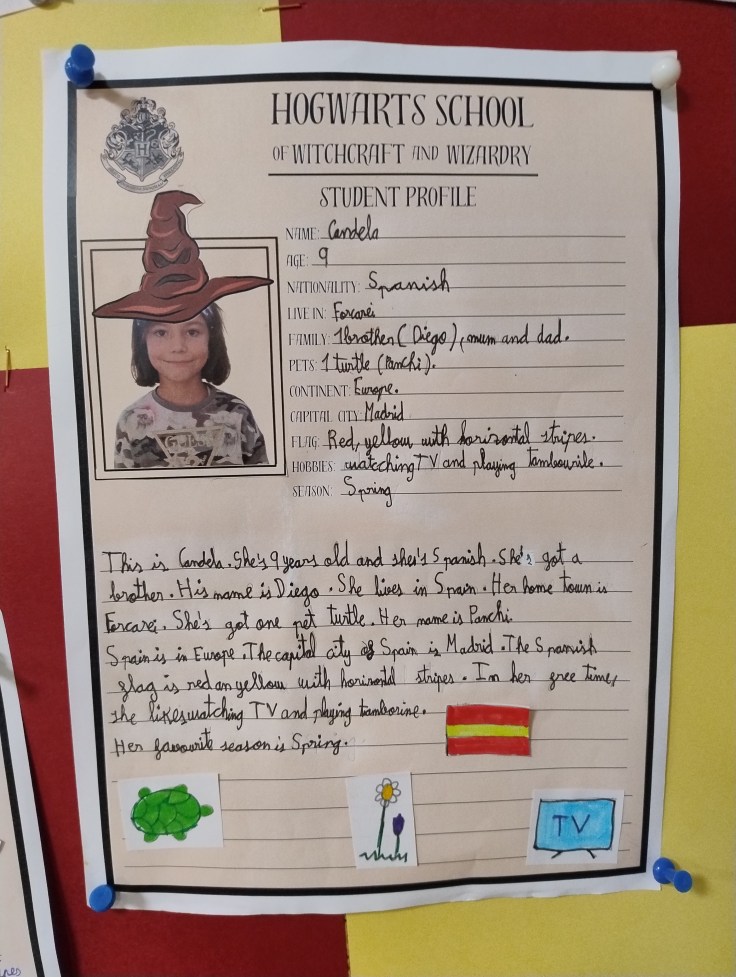 HOGWARTS SCHOOL
OF WITCHCRAFT AND WIZARDRY
STUDENT PROFILE
NAME: Candela
AGE: 9
NATIONALITY: Spanish
LIVE IN: Forcarei
FAMILY: 1 brother (Diego), mum and dad.
PETS: 1 turtle (Panchi).
CONTINENT: Europe.
CAPITAL CITY: Madrid
FLAG: Red, yellow with horizontal stripes.
HOBBIES: watcching TV and playing tambourile.
SEASON: Spring
This is Candela. She's 9 years old and she's Spanish. She's got a
brother. His name is Diego. She lives in Spain. Her home town is
Forcarei. She's got one pet turtle. Her name is Panchi.
Spain is in Europe. The capital city of Spain is Madrid. The Spanish
flag is red an yellow with horizontal stripes. In her free time,
she likes watching TV and playing tamborine.
Her favourite season is Spring.
TV